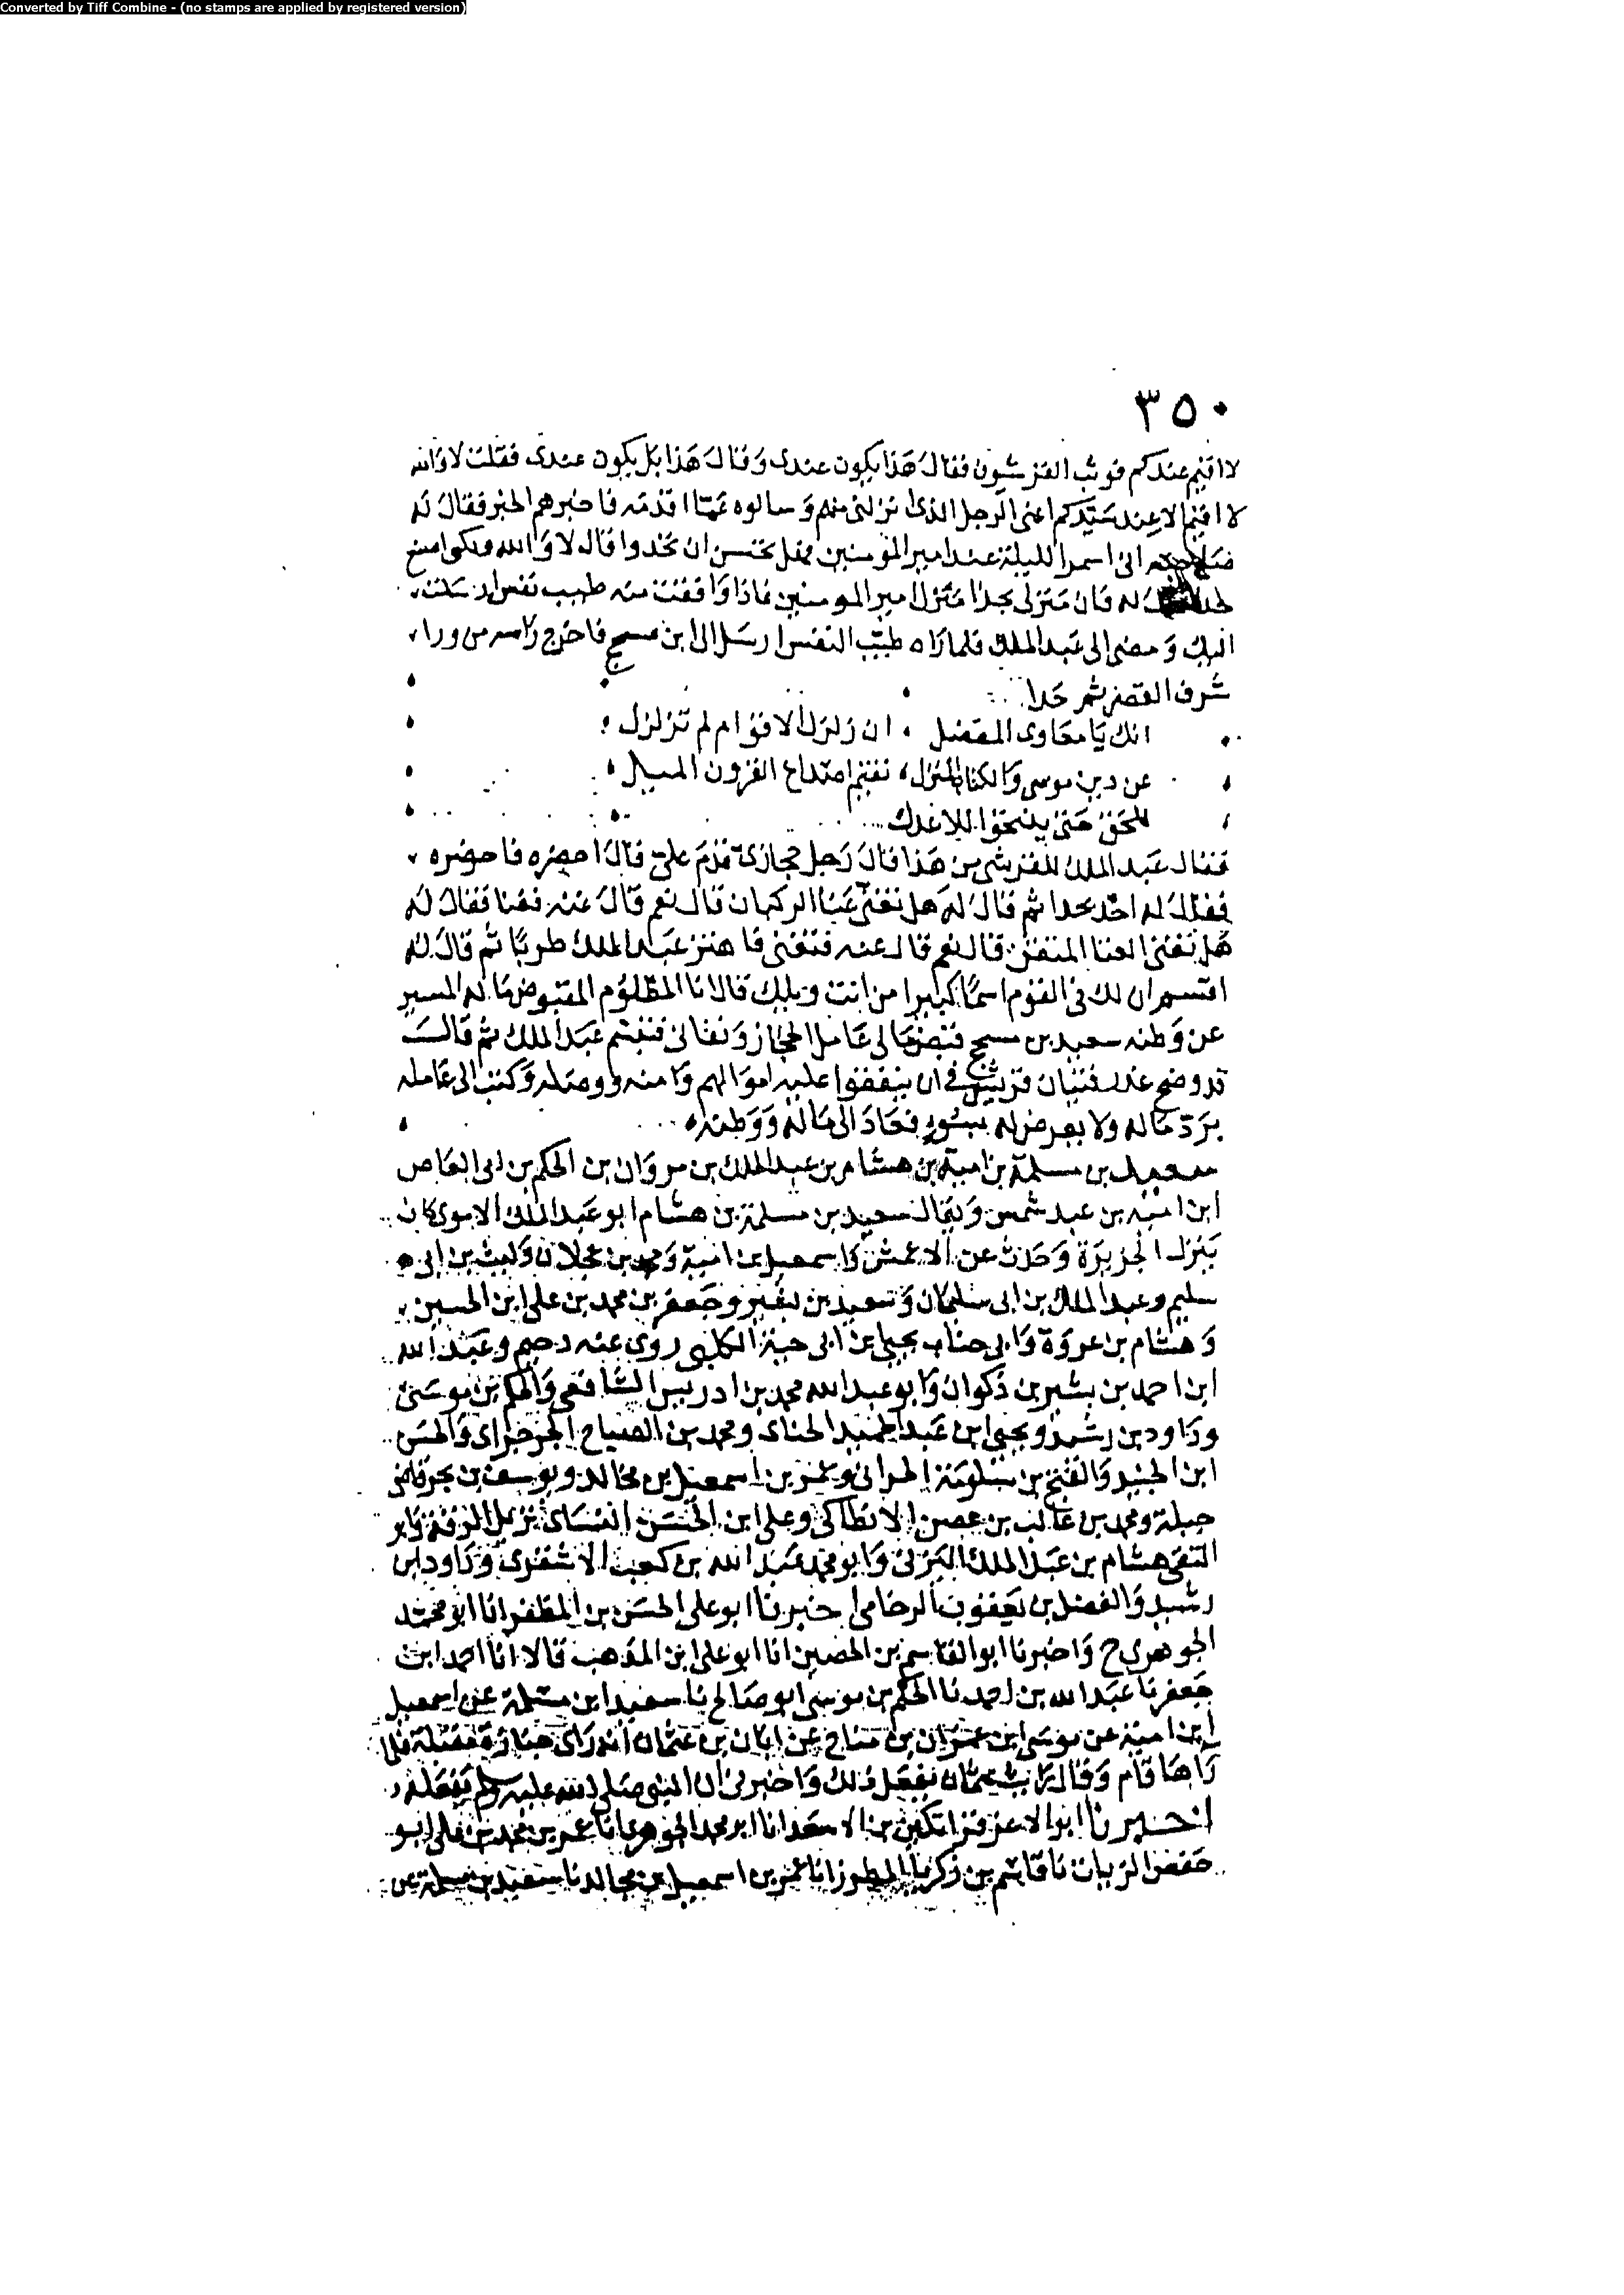 Converted by Tiff Combine - (no stamps are applied by registered version)
٣٥٠
لا اقيم عندكم فوثب القرشيون فقال هذا يكون عندى وقال هذا بل يكون عندى فقلت لا والله
لا اقيم الا عند سيدكم اعنى الرجل الذى انزلنى منهم وسالوه عما اقدمه فاخبرهم الخبر فقال له
انى اسمر الليلة عند امير المومنين فهل تحسن ان تحدوا قال لا والله ولكنى اصنع
له فان منزلى بحذا منزل امير المومنين فاذا وافقت منه طيب نفس ارسلت
اليك ومضى الى عبد الملك فلما راه طيب النفس ارسل الى ابن مسجح فاخرج راسه من ورا
شرف القصر ثم حدا
انك يا معاوى المفضل ان زلزل الاقوام لم تزلزل
عن دين موسى والكتاب المنزل تقيم اصداغ القرون الميل
للحق حتى ينتحوا للاعدل
فقال عبد الملك للقرشى من هذا قال رجل حجازى قدم على قال احضره فاحضره
فقال له احد بحدا ثم قال له هل تغنى غنا الركبان قال نعم قال غنه فغنا فقال له
هل تغنى الغنا المتقن قال نعم قال غنه فتغنى فاهتز عبد الملك طربا ثم قال له
اقسم ان لك فى القوم اسما كبيرا من انت ويلك قال انا المظلوم المقبوض ماله المسير
عن وطنه سعيد بن مسجح قبض مالى عامل الحجاز ونفانى فتبسم عبد الملك ثم قال
قد وضح عذر فتيان قريش فى ان ينفقوا عليه اموالهم وامنه ووصله وكتب الى عامله
برد ماله ولا يعرض له بسوء فعاد الى ماله ووطنه
سعيد بن مسلمة بن امية بن هشام بن عبد الملك بن مروان بن الحكم بن ابى العاص
ابن امية بن عبد شمس ويقال سعيد بن مسلمة بن هشام ابو عبد الملك الاموى كان
ينزل الجزيرة وحدث عن الاعمش واسمعيل بن امية ومحمد بن عجلان وليث بن ابى
سليم وعبد الملك بن ابى سليمان وسعيد بن بشير وجعفر بن محمد بن على ابن الحسين
وهشام بن عروة وابى جناب يحيى بن ابى حية الكلبى روى عنه دحيم وعبد الله
ابن احمد بن بشير بن ذكوان وابو عبد الله محمد بن ادريس الشافعى والحكم بن موسى
وداود بن رشيد ويحيى ابن عبد الحميد الحمانى ومحمد بن الصباح الجرجراى والحسن
ابن الجنيد والفتح بن سلومة الحرانى وعمر بن اسمعيل بن مجالد ويوسف بن بحر قاضى
جبلة ومحمد بن غالب بن غصن الانطاكى وعلى ابن الحسن النسائى نزيل الرقة وابو
التقى هشام بن عبد الملك اليزنى وابو محمد عبد الله بن كعب الاشقرى وداود ابن
رشيد والفضل بن يعقوب الرخامى اخبرنا ابو على الحسن بن المظفر انا ابو محمد
الجوهرى ح واخبرنا ابو القاسم بن الحصين انا ابو على ابن المذهب قالا انا احمد ابن
جعفر نا عبد الله بن احمد نا الحكم بن موسى ابو صالح نا سعيد ابن مسلمة عن اسمعيل
ابن امية عن موسى ابن عمران بن مناح عن ابان بن عثمان انه راى جنازة مقبلة فلما
راها قام وقال رايت عثمان يفعل ذلك واخبرنى ان النبى صلى الله عليه وسلم يفعله
اخبرنا ابو الاعز قراتكين بن الاسعد انا ابو محمد الجوهرى انا عمر بن محمد بن على ابو
حفص الزيات نا قاسم بن زكريا المطرز نا عمر بن اسمعيل بن مجالد نا سعيد بن مسلمة عن